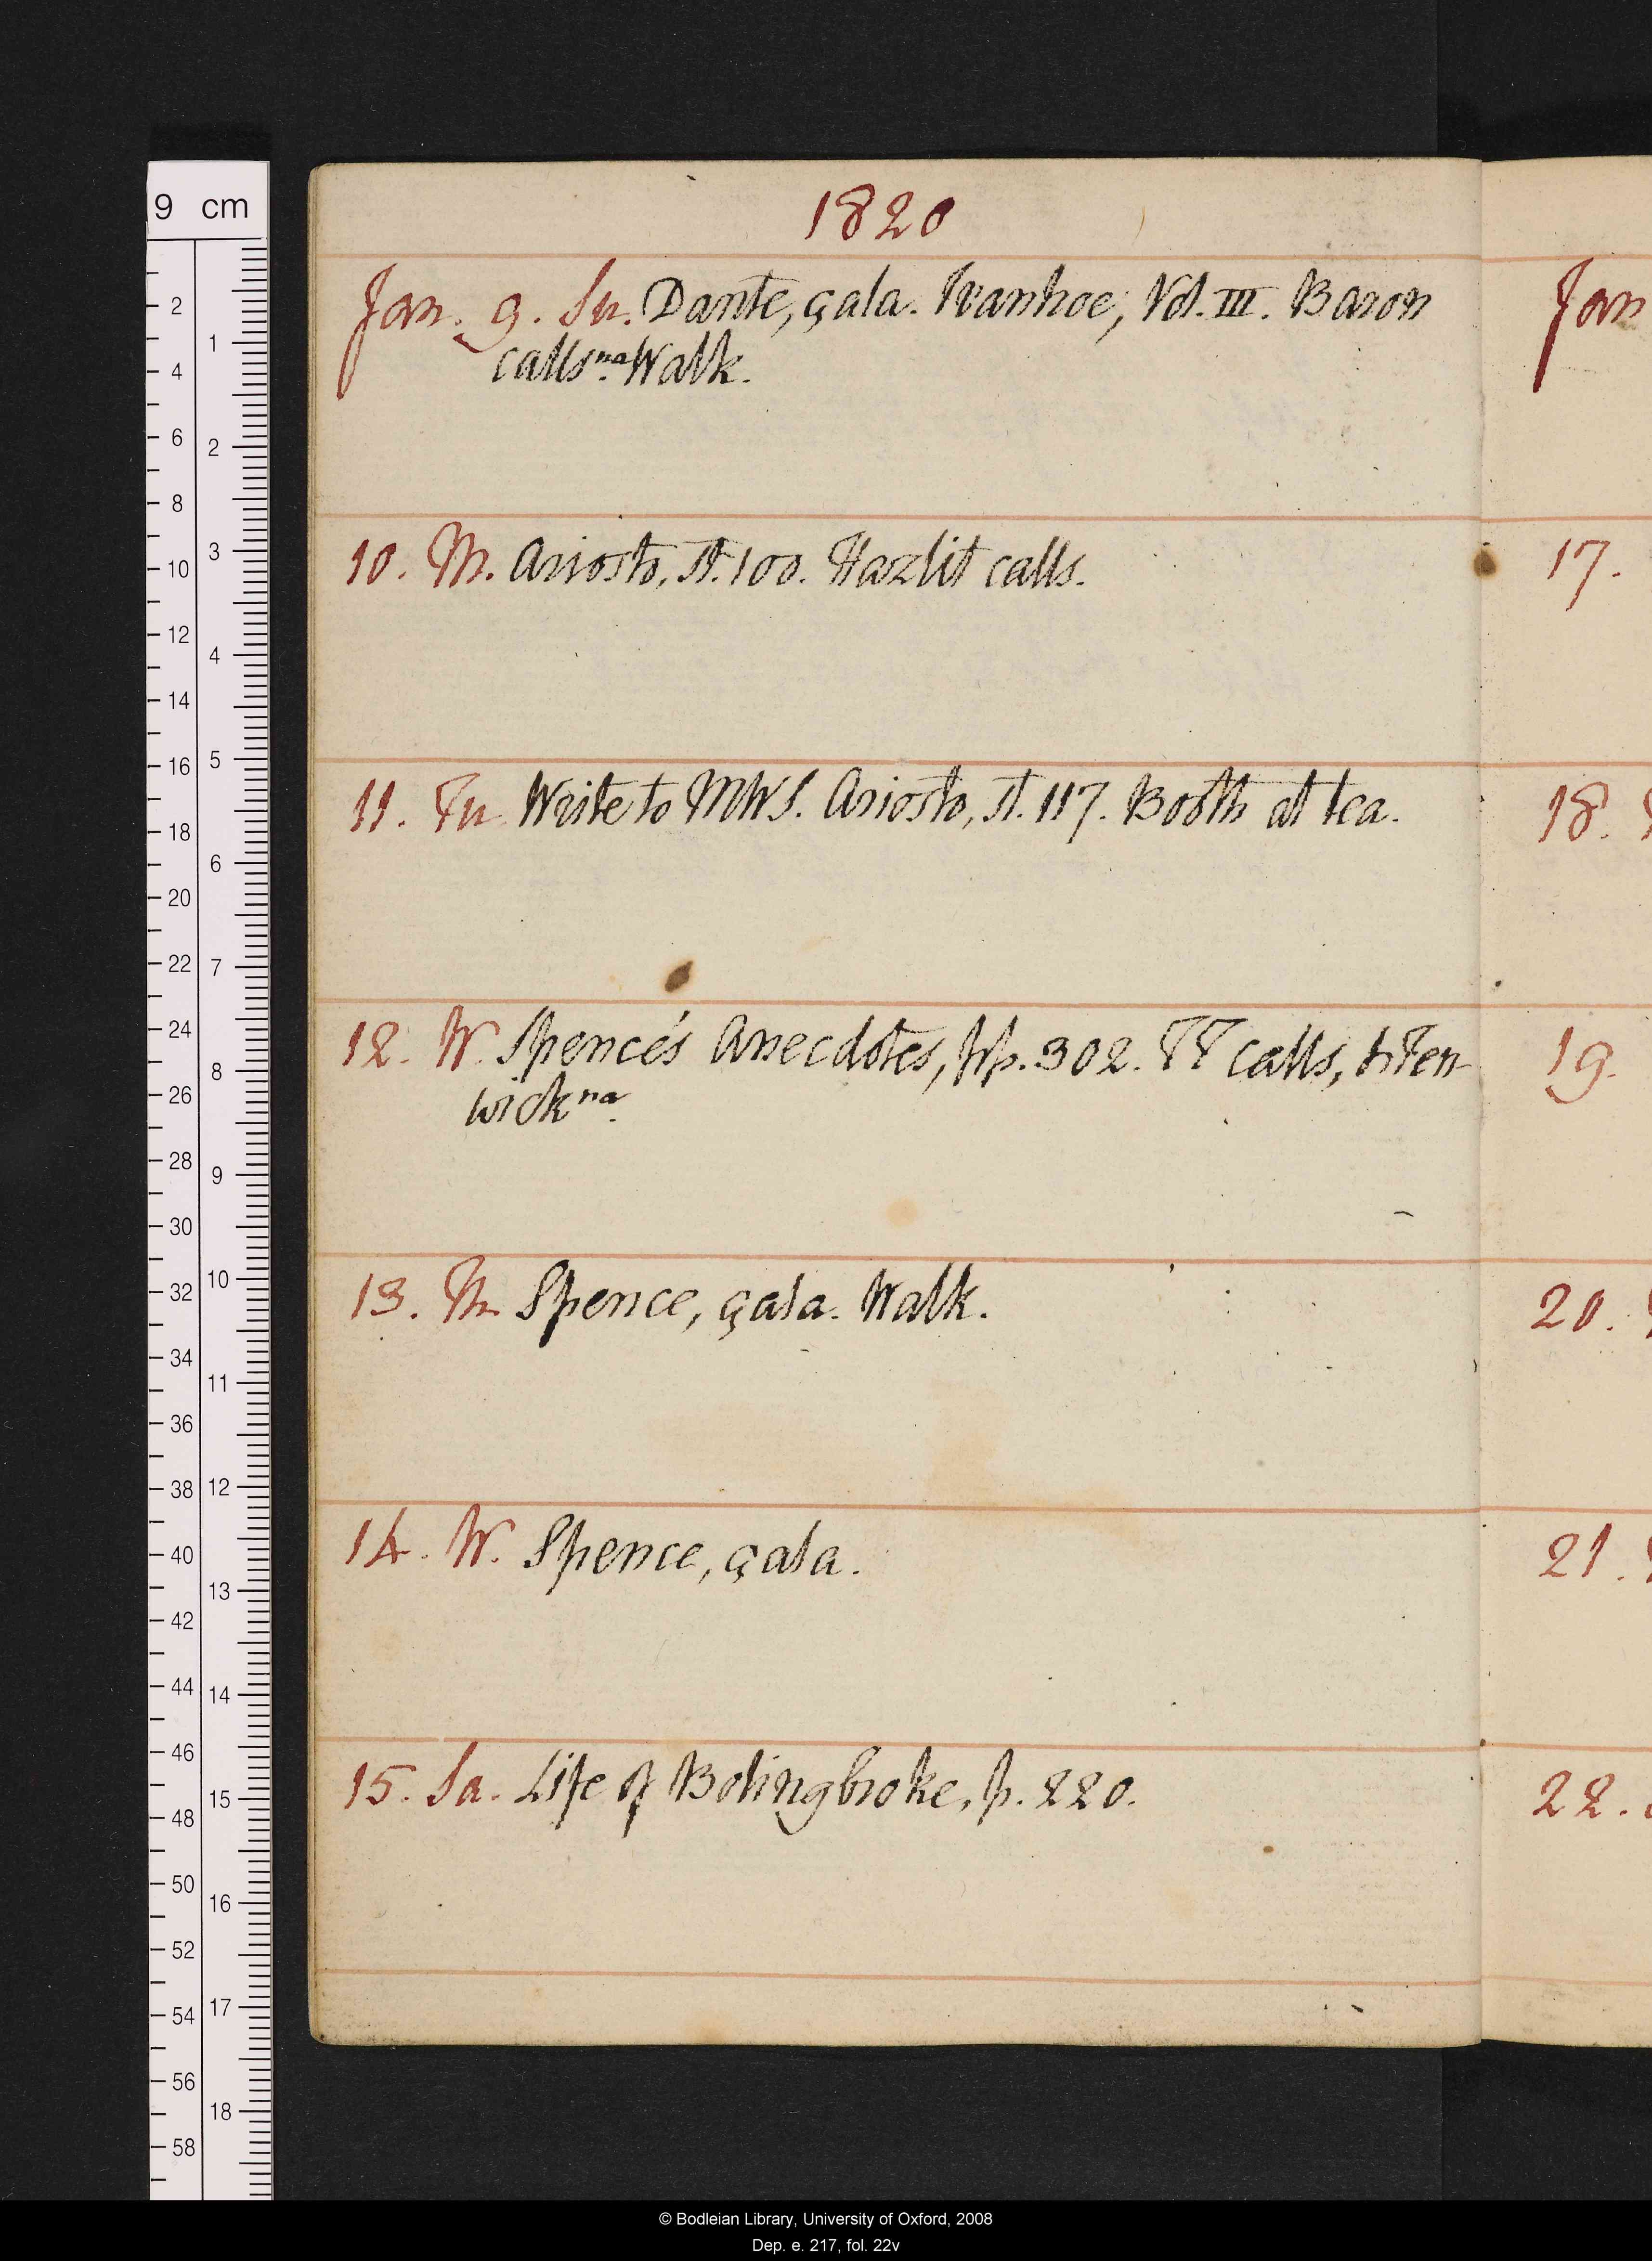 1820
Jan. 9. Su. Dante, çala. Ivanhoe, Vol. III. Baron
calls na. Walk.
10. M. Ariosto, st. 100. Hazlit calls.
11. Tu. Write to MWS. Ariosto, st. 117. Booth at tea.
12. W. Spence's Anecdotes, pp. 302. TT calls, & Fen-
wick na.
13. Th. Spence, çala. Walk.
14. W. Spence, çala.
15. Sa. Life of Bolingbroke, p. 220.
Jan
17.
18.
19.
20.
21.
22.
9 cm
2
4
6
8
10
12
14
16
18
20
22
24
26
28
30
32
34
36
38
40
42
44
46
48
50
52
54
56
58
1
2
3
4
5
6
7
8
9
10
11
12
13
14
15
16
17
18
© Bodleian Library, University of Oxford, 2008
Dep. e. 217, fol. 22v